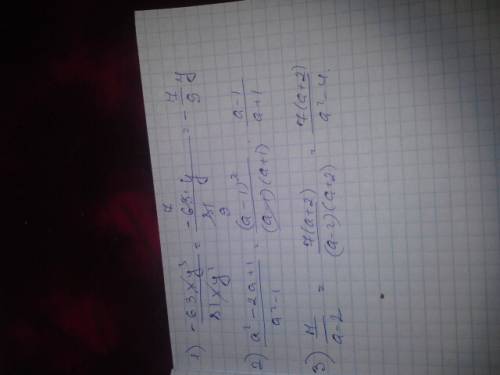 1) -63xy³/81xy² = -63·y/81 = -7/9 y
7
9
2) a²-2a+1/a²-1 = (a-1)²/(a-1)(a+1) · a-1/a+1
3) 7/a-2 = 7(a+2)/(a-2)(a+2) = 7(a+2)/a²-4.